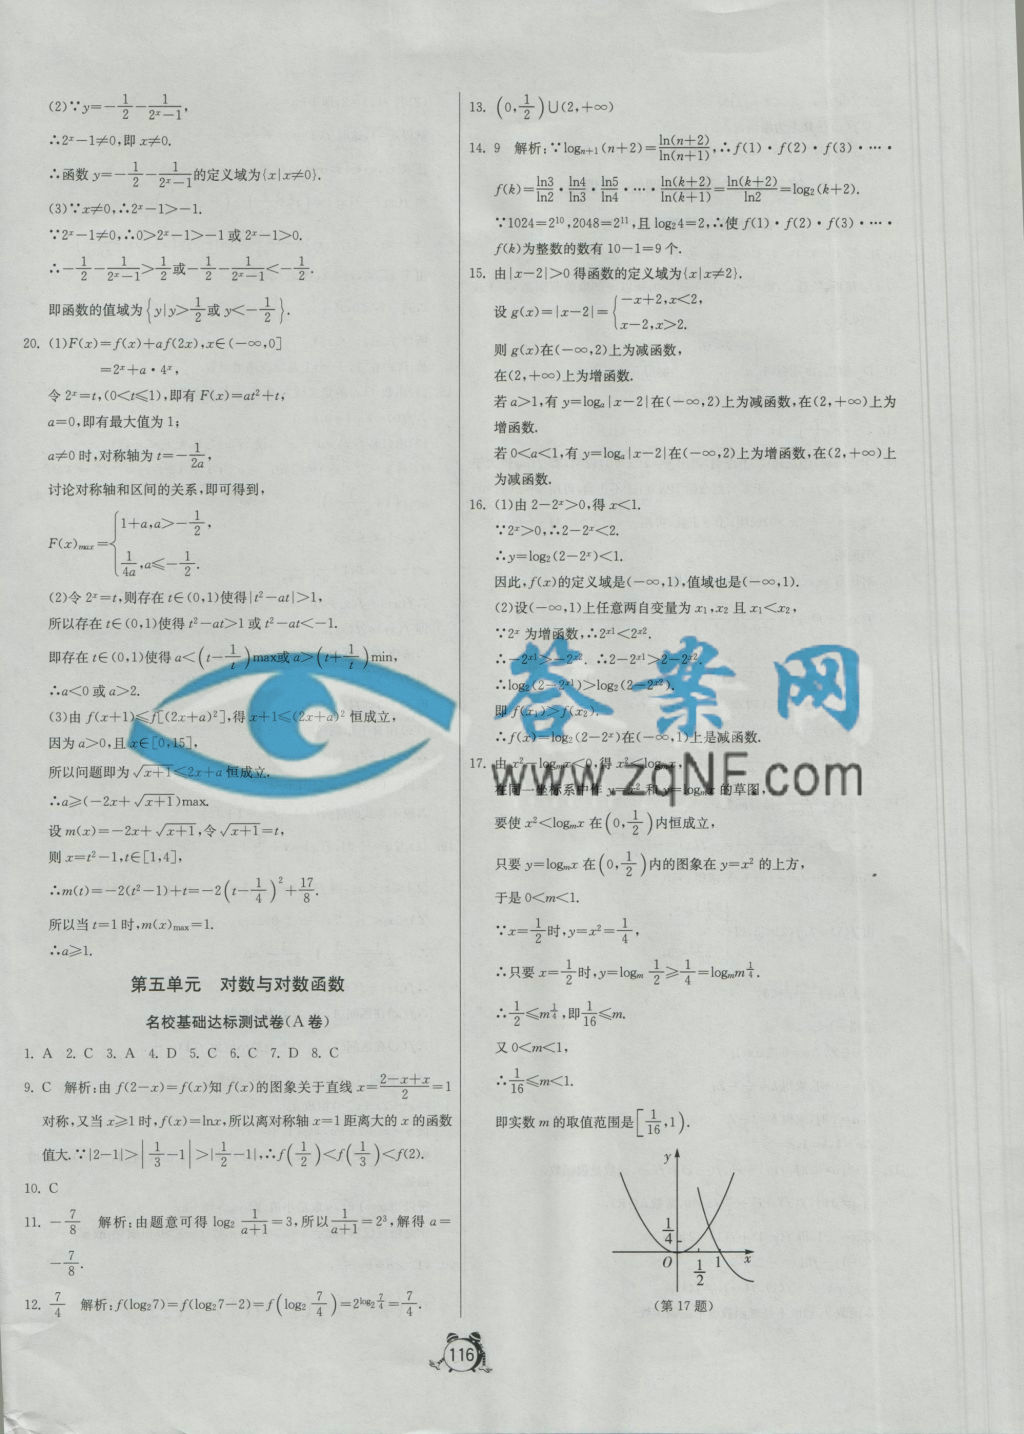 (2)∵y=-1/2-1/(2^x-1),
∴2^x-1≠0,即 x≠0.
∴函数 y=-1/2-1/(2^x-1)的定义域为{x|x≠0}.
(3)∵x≠0,∴2^x-1>-1.
∵2^x-1≠0,∴0>2^x-1>-1 或 2^x-1>0.
∴-1/2-1/(2^x-1)>1/2 或-1/2-1/(2^x-1)<-1/2.
即函数的值域为{y|y>1/2 或 y<-1/2}.
20. (1)F(x)=f(x)+af(2x),x∈(-∞,0]
=2^x+a·4^x,
令 2^x=t,(0<t≤1),即有 F(x)=at²+t,
a=0,即有最大值为 1;
a≠0 时,对称轴为 t=-1/(2a),
讨论对称轴和区间的关系,即可得到,
F(x)max={1+a,a>-1/2,
1/(4a),a≤-1/2.
(2)令 2^x=t,则存在 t∈(0,1)使得|t²-at|>1,
所以存在 t∈(0,1)使得 t²-at>1 或 t²-at<-1.
即存在 t∈(0,1)使得 a<(t-1/t)max或 a>(t+1/t)min,
∴a<0 或 a>2.
(3)由 f(x+1)≤f[(2x+a)²],得 x+1≤(2x+a)² 恒成立,
因为 a>0,且 x∈[0,15],
所以问题即为 √(x+1)≤2x+a 恒成立.
∴a≥(-2x+√(x+1))max.
设 m(x)=-2x+√(x+1),令√(x+1)=t,
则 x=t²-1,t∈[1,4],
∴m(t)=-2(t²-1)+t=-2(t-1/4)²+17/8.
所以当 t=1 时,m(x)max=1.
∴a≥1.
第五单元 对数与对数函数
名校基础达标测试卷(A 卷)
1. A 2. C 3. A 4. D 5. C 6. C 7. D 8. C
9. C 解析:由 f(2-x)=f(x)知 f(x)的图象关于直线 x=(2-x+x)/2=1
对称,又当 x≥1 时,f(x)=lnx,所以离对称轴 x=1 距离大的 x 的函数
值大.∵|2-1|>|1/3-1|>|1/2-1|,∴f(1/2)<f(1/3)<f(2).
10. C
11. -7/8 解析:由题意可得 log₂ 1/(a+1)=3,所以1/(a+1)=2³,解得 a=
-7/8.
12. 7/4 解析:f(log₂7)=f(log₂7-2)=f(log₂ 7/4)=2^(log₂ 7/4)=7/4.
13. (0,1/2)∪(2,+∞)
14. 9 解析:∵log_{n+1}(n+2)=ln(n+2)/ln(n+1),∴f(1)·f(2)·f(3)·…·
f(k)=ln3/ln2·ln4/ln3·ln5/ln4·…·ln(k+2)/ln(k+1)=ln(k+2)/ln2=log₂(k+2).
∵1024=2¹⁰,2048=2¹¹,且 log₂4=2,∴使 f(1)·f(2)·f(3)·…·
f(k)为整数的数有 10-1=9 个.
15. 由|x-2|>0 得函数的定义域为{x|x≠2}.
设 g(x)=|x-2|={-x+2,x<2,
x-2,x>2.
则 g(x)在(-∞,2)上为减函数,
在(2,+∞)上为增函数.
若 a>1,有 y=log_a|x-2|在(-∞,2)上为减函数,在(2,+∞)上为
增函数.
若 0<a<1,有 y=log_a|x-2|在(-∞,2)上为增函数,在(2,+∞)上
为减函数.
16. (1)由 2-2^x>0,得 x<1.
∵2^x>0,∴2-2^x<2.
∴y=log₂(2-2^x)<1.
因此,f(x)的定义域是(-∞,1),值域也是(-∞,1).
(2)设(-∞,1)上任意两自变量为 x₁,x₂ 且 x₁<x₂,
∵2^x 为增函数,∴2^x₁<2^x₂.
∴-2^x₁>-2^x₂. ∴2-2^x₁>2-2^x₂.
∴log₂(2-2^x₁)>log₂(2-2^x₂).
即 f(x₁)>f(x₂).
∴f(x)=log₂(2-2^x)在(-∞,1)上是减函数.
17. 由 x²-log_m x<0,得 x²<log_m x,
在同一坐标系中作 y=x² 和 y=log_m x 的草图,
要使 x²<log_m x 在(0,1/2)内恒成立,
只要 y=log_m x 在(0,1/2)内的图象在 y=x² 的上方,
于是 0<m<1.
∵x=1/2时,y=x²=1/4,
∴只要 x=1/2时,y=log_m 1/2≥1/4=log_m m^(1/4).
∴1/2≤m^(1/4),即1/16≤m.
又 0<m<1,
∴1/16≤m<1.
即实数 m 的取值范围是[1/16,1).
y
1/4
O 1/2 1 x
(第 17 题)
116
答案网
www.zqNF.com